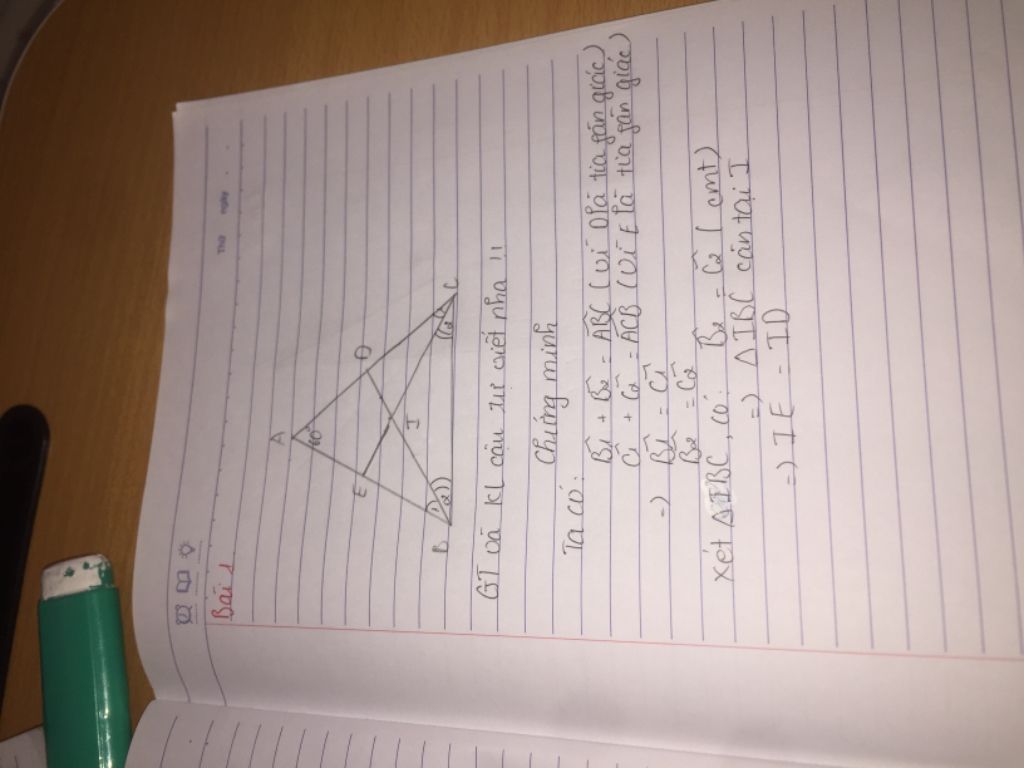 Thứ ngày
Bài 1
A
60°
E
D
I
B
2
2
C
GT và KL cậu tự viết nha !!
Chứng minh
Ta có:
B̂1 + B̂2 = ABC (vì D là tia gân giác)
Ĉ1 + Ĉ2 = ACB (vì E là tia gân giác)
=> B̂1 = Ĉ1
B̂2 = Ĉ2
Xét ΔIBC, có: B̂2 = Ĉ2 (cmt)
=> ΔIBC cân tại I
=> IE = ID